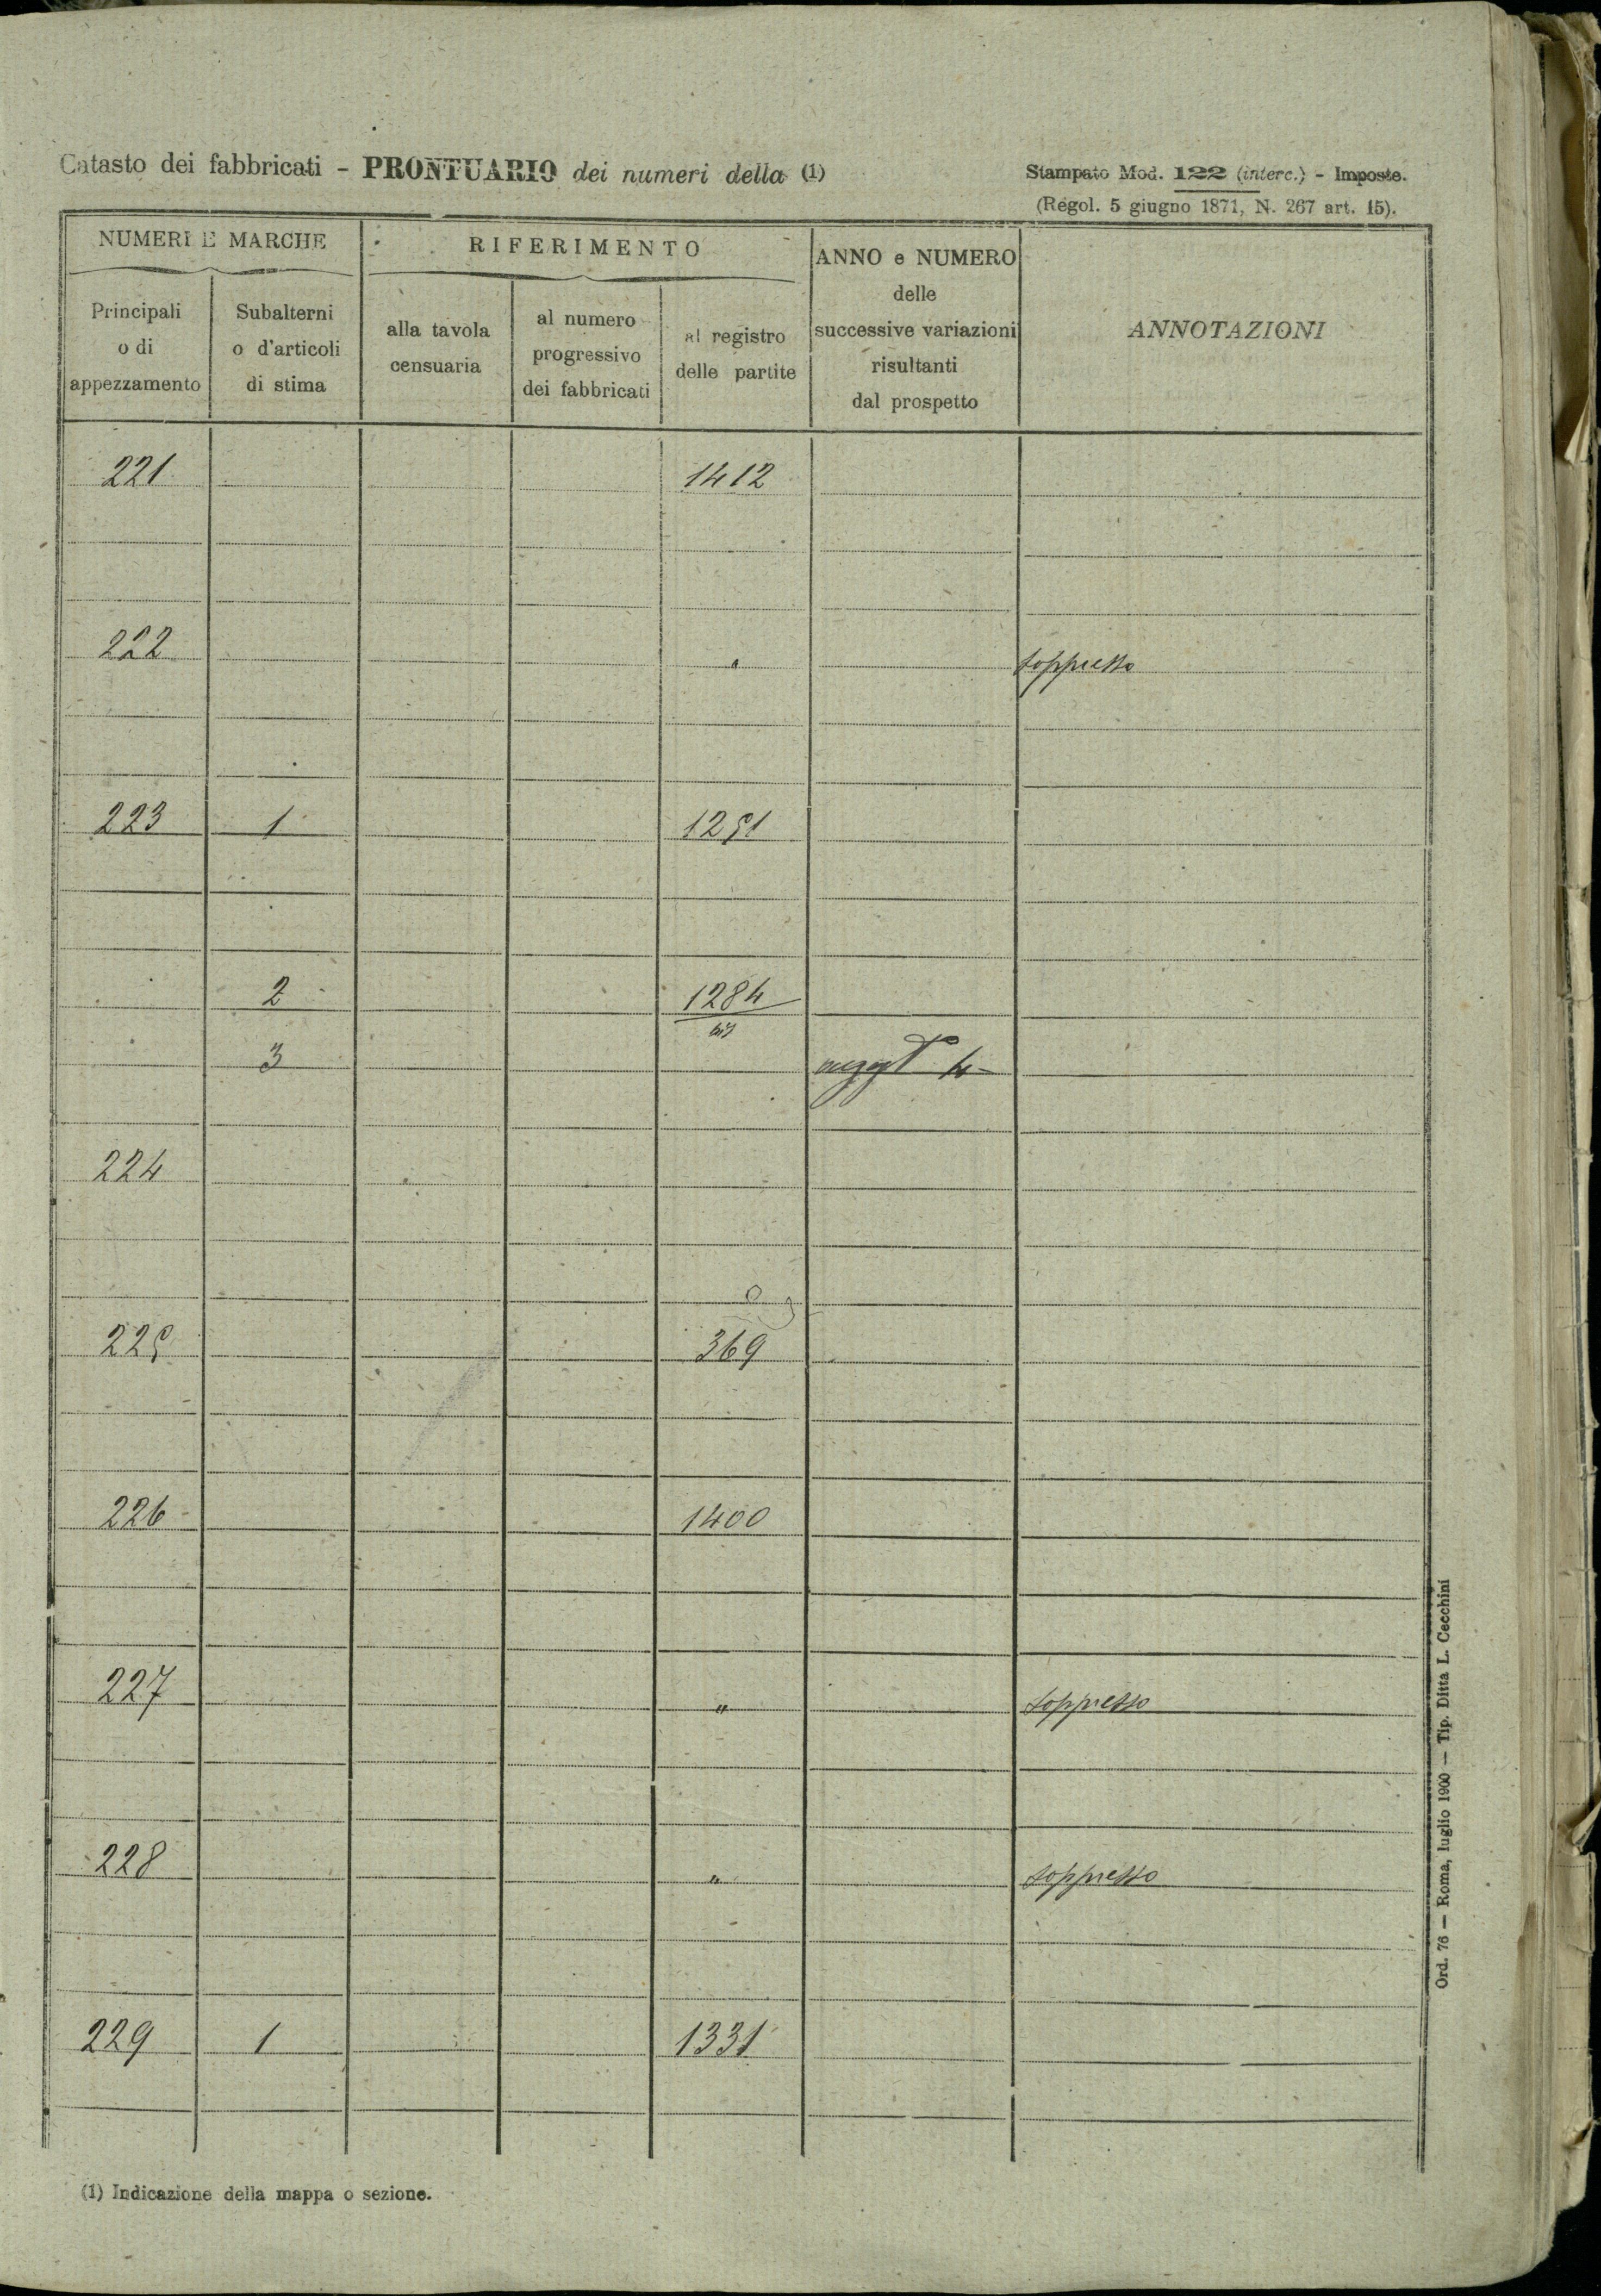 Catasto dei fabbricati - PRONTUARIO dei numeri della (1)
Stampato Mod. 122 (interc.) - Imposte.
(Regol. 5 giugno 1871, N. 267 art. 15).
NUMERI E MARCHE
RIFERIMENTO
ANNO e NUMERO
delle
successive variazioni
risultanti
dal prospetto
ANNOTAZIONI
Principali
o di
appezzamento
Subalterni
o d'articoli
di stima
alla tavola
censuaria
al numero
progressivo
dei fabbricati
al registro
delle partite
221 1412
222 " soppresso
223 1 1251
2 1284
bis
3
224
225 369
226 1400
227 " soppresso
228 " soppresso
229 1 1331
(1) Indicazione della mappa o sezione.
Ord. 76 — Roma, luglio 1900 — Tip. Ditta L. Cecchini